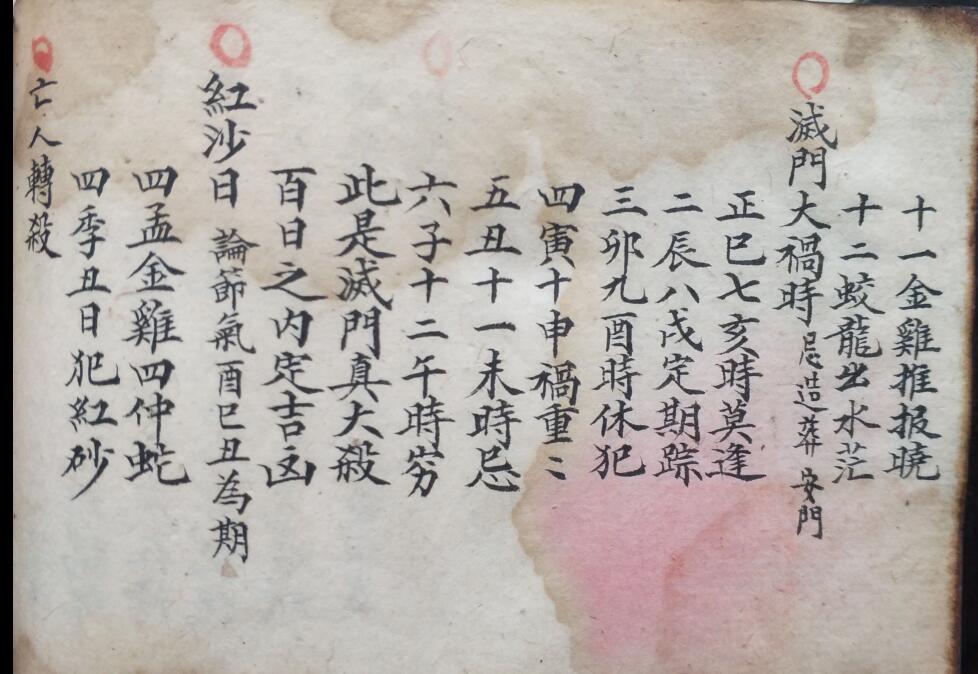 十一金雞推报曉
十二蛟龍出水茫
滅門大禍時 忌造葬安門
正巳七亥時莫逢
二辰八戌定期踪
三卯九酉時休犯
四寅十申禍重〻
五丑十一未時忌
六子十二午時労
此是滅門真大殺
百日之内定吉凶
紅沙日 論節氣酉巳丑為期
四孟金雞四仲蛇
四季丑日犯紅砂
亡人轉殺